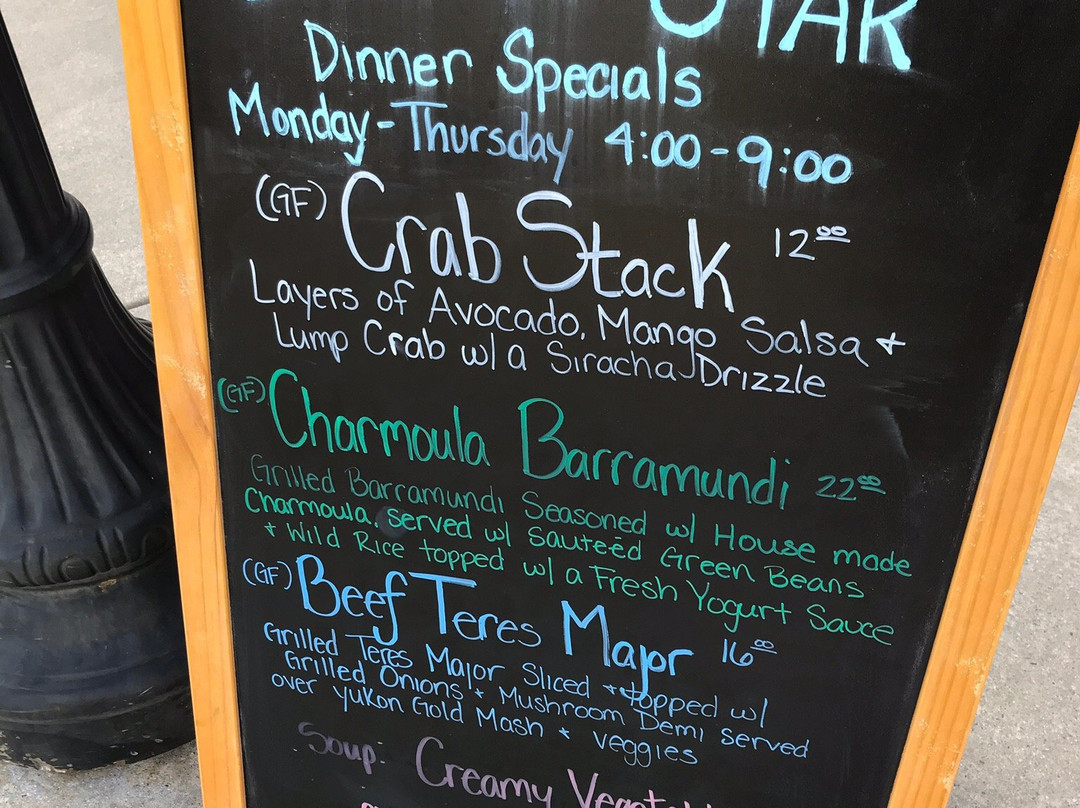 Dinner Specials
Monday-Thursday 4:00-9:00
(GF) Crab Stack 12.00
Layers of Avocado, Mango Salsa +
Lump Crab w/ a Siracha Drizzle
(GF) Charmoula Barramundi 22.00
Grilled Barramundi Seasoned w/ House made
Charmoula, served w/ Sauteéd Green Beans
+ Wild Rice topped w/ a Fresh Yogurt Sauce
(GF) Beef Teres Major 16.00
Grilled Teres Major Sliced + topped w/
Grilled Onions + Mushroom Demi served
over Yukon Gold Mash + Veggies
Soup: Creamy